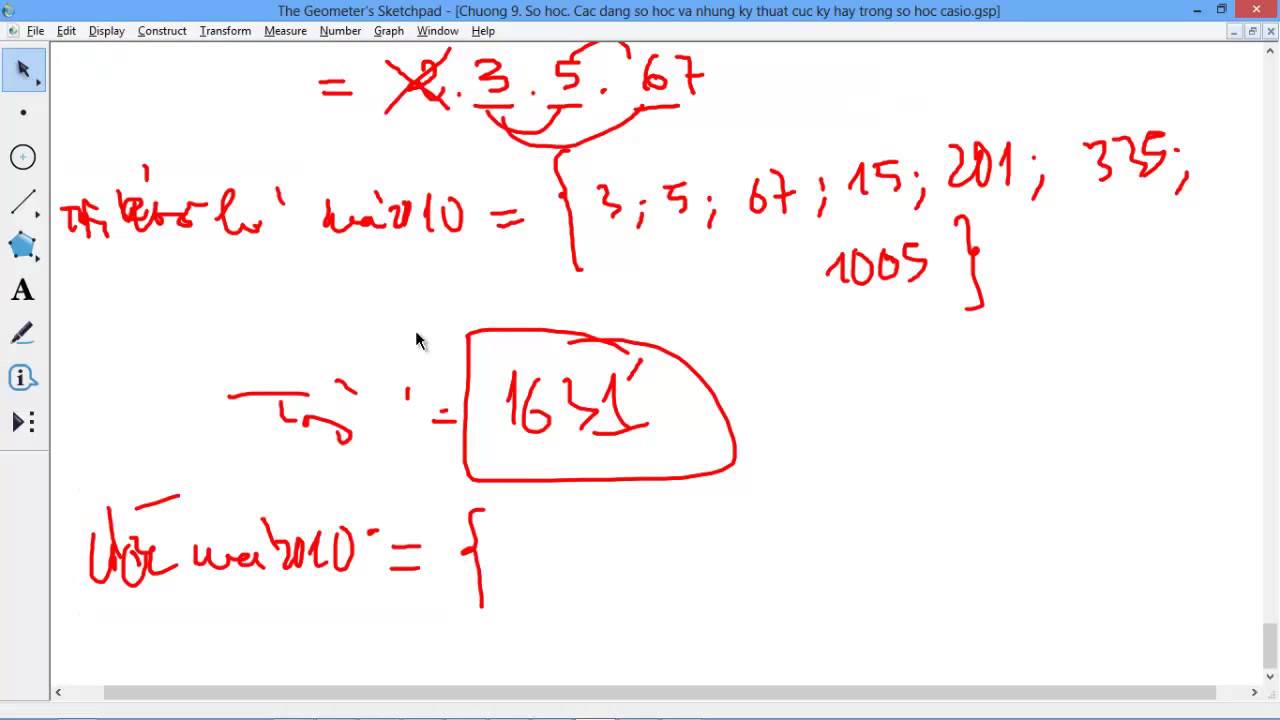 The Geometer's Sketchpad - [Chuong 9. So hoc. Cac dang so hoc va nhung ky thuat cuc ky hay trong so hoc casio.gsp]
File Edit Display Construct Transform Measure Number Graph Window Help
= 2 . 3 . 5 . 67
2010 = { 3 ; 5 ; 67 ; 15 ; 201 ; 335 ;
1005 }
= 1631
2010 = {
A